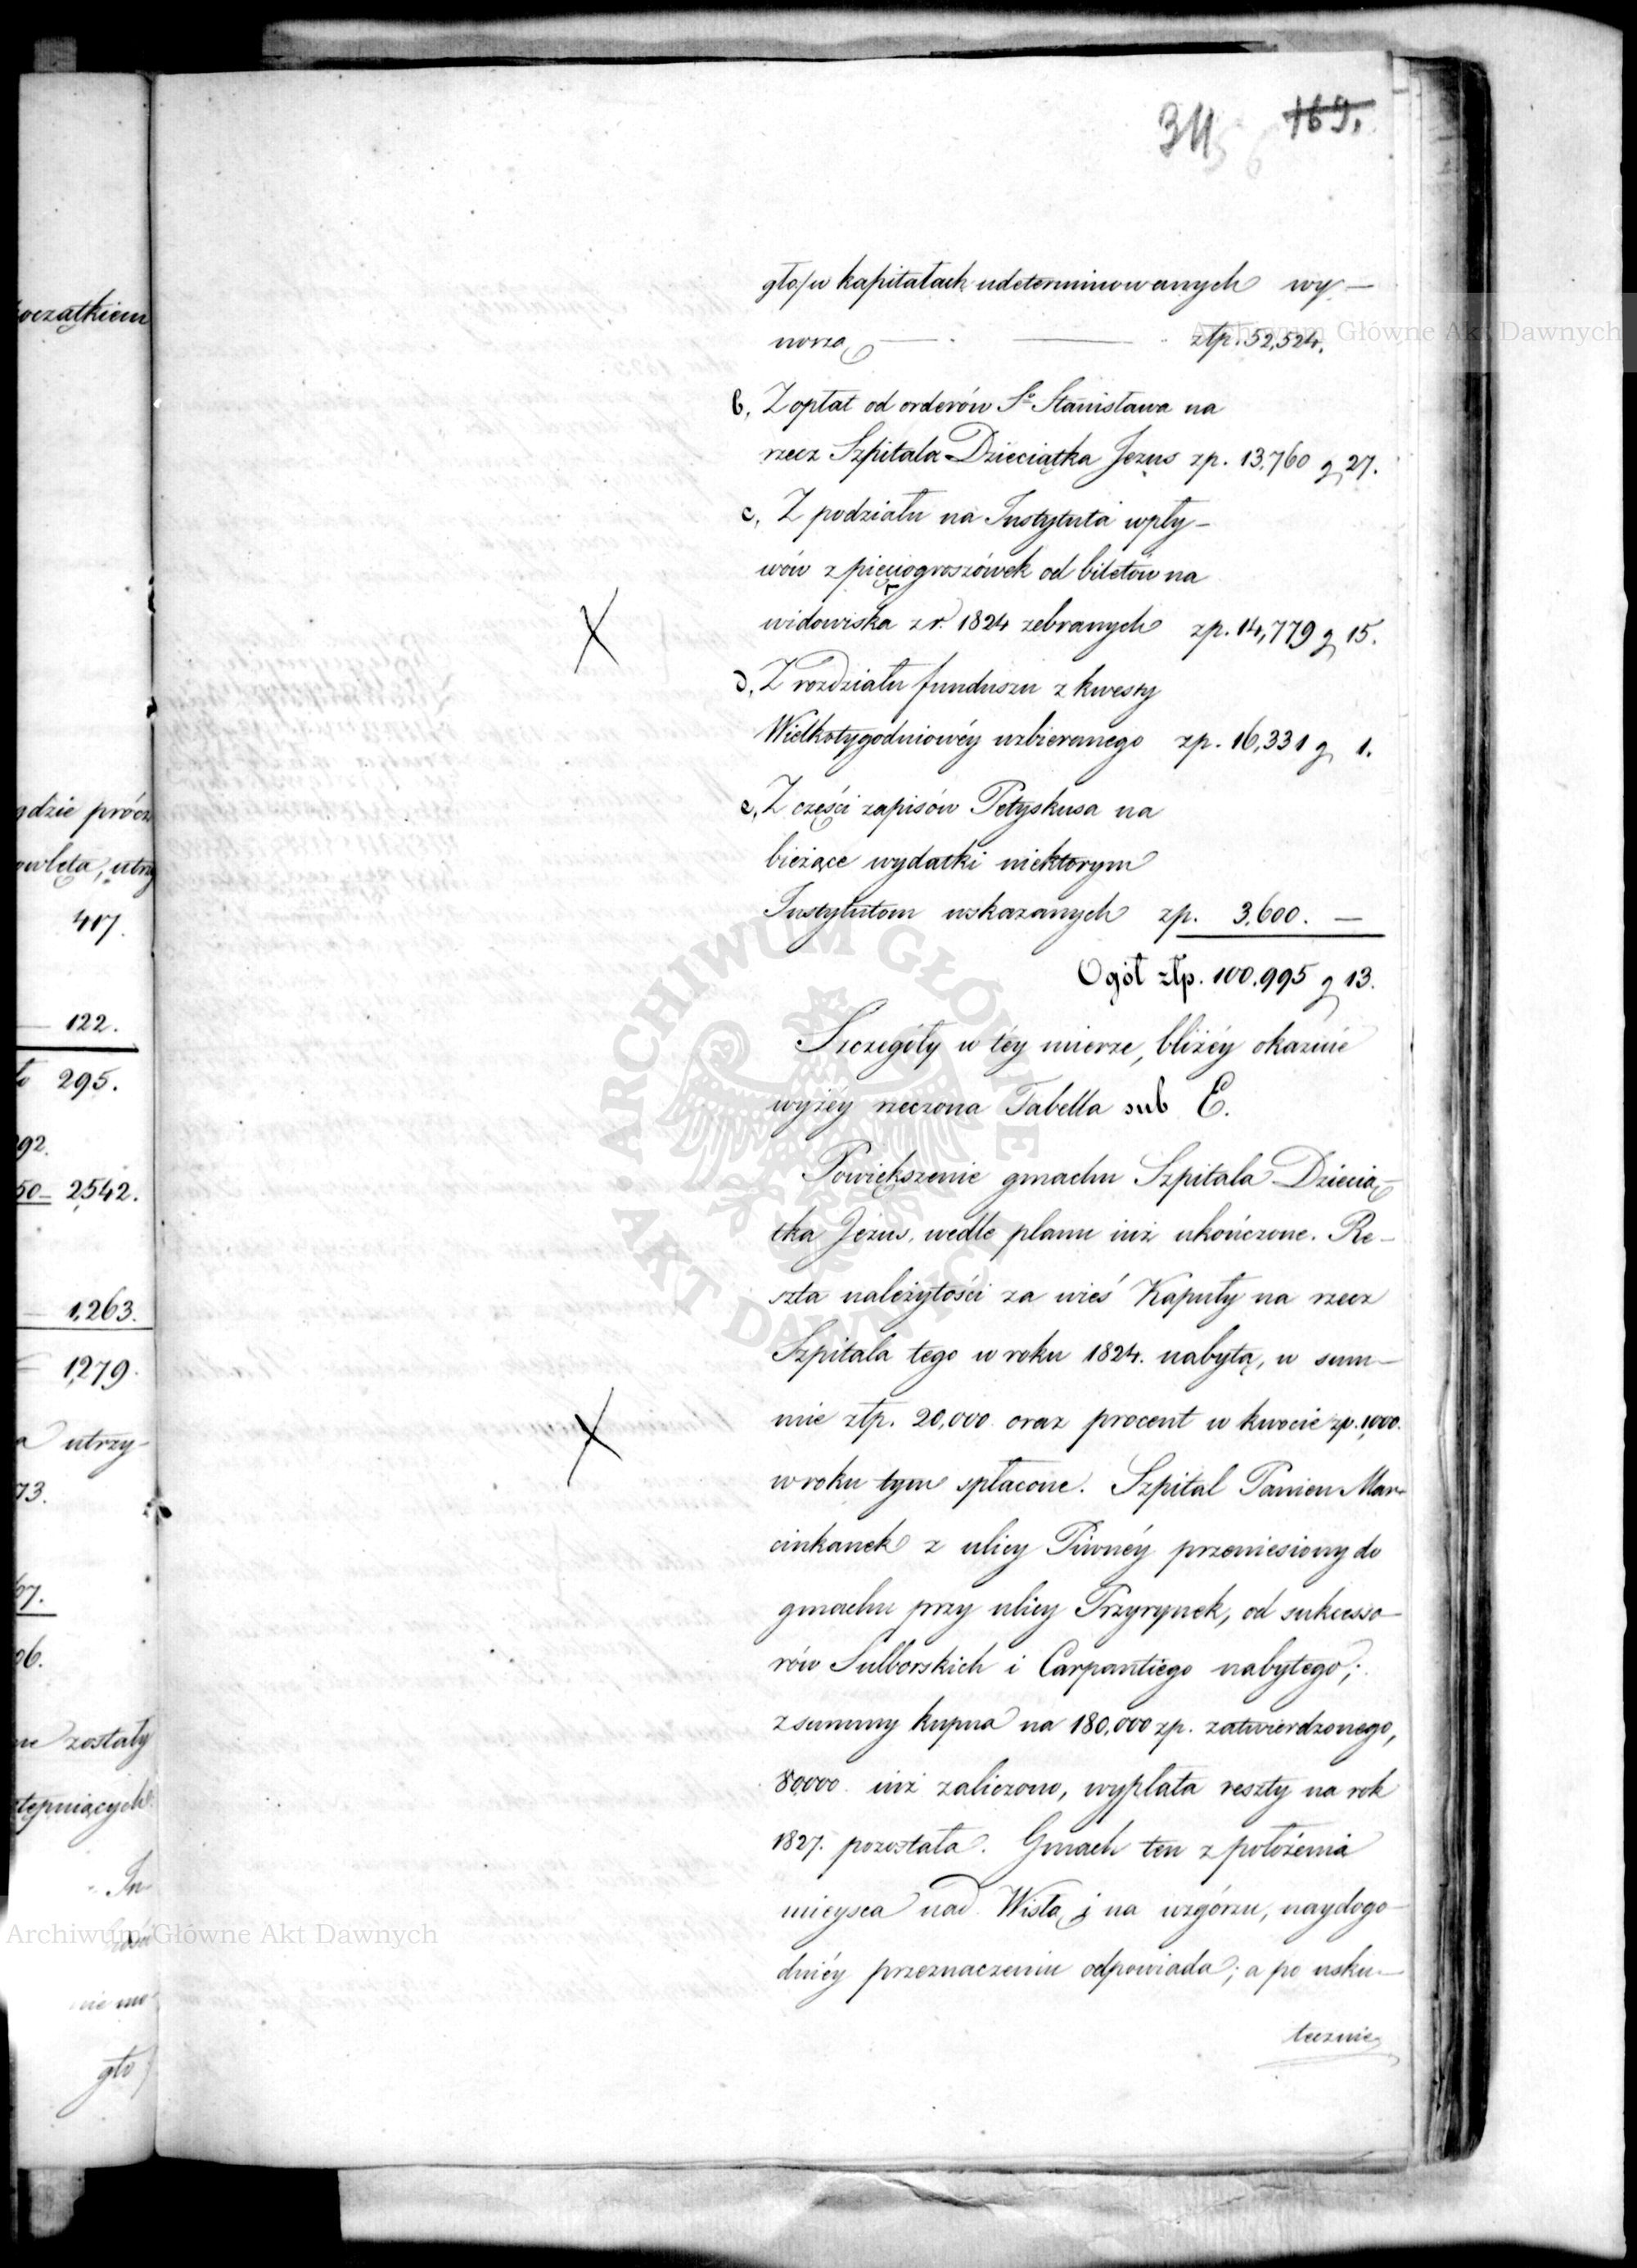 34 169.
56
gło/w kapitałach udeterminowanych wy-
noszą — . — . złp. 52,524.
b, Z opłat od orderów Sº Stanisława na
rzecz Szpitala Dzieciątka Jezus zp. 13,760 g 27.
c, Z podziału na Instytuta wpły-
wów z pięciogroszówek od biletów na
widowiska z r. 1824 zebranych zp. 14,779 g 15.
d, Z rozdziału funduszu z kwesty
Wielkotygodniowéy uzbieranego zp. 16,331 g 1.
e, Z części zapisów Petyskusa na
bieżące wydatki niektorym
Instytutom wskazanych zp. 3,600. —
Ogół złp. 100.995 g 13.
Szczegóły w téy mierze, bliżéy okazuie
wyżéy rzeczona Tabella sub E.
Powiększenie gmachu Szpitala Dziecią-
tka Jezus, wedle planu iuż ukończone. Re-
szta należytości za wieś Kaputy na rzecz
Szpitala tego w roku 1824. nabytą, w sum-
mie złp. 20,000 oraz procent w kwocie zp. 1,000.
w roku tym spłacone. Szpital Panien Mar-
cinkanek z ulicy Piwnéy przeniesiony do
gmachu przy ulicy Przyrynek, od sukcesso-
rów Sulborskich i Carpantiego nabytego;
z summy kupna na 180,000 zp. zatwierdzonego,
80,000 iuż zaliczono, wypłata reszty na rok
1827. pozostała. Gmach ten z położenia
mieysca nad Wisłą i na wzgórzu, naydogo-
dniéy przeznaczeniu odpowiada; a po usku-
tecznie
oczątkiem
gdzie prócz
owlęta, utrzy
417.
122.
295.
92.
50 — 2,542.
1,263.
1,279.
a utrzy-
73.
67.
06.
ne zostały
stępuiących
In-
nie mo
gło/
ARCHIWUM GŁÓWNE AKT DAWNYCH
Archiwum Główne Akt Dawnych
Archiwum Główne Akt Dawnych